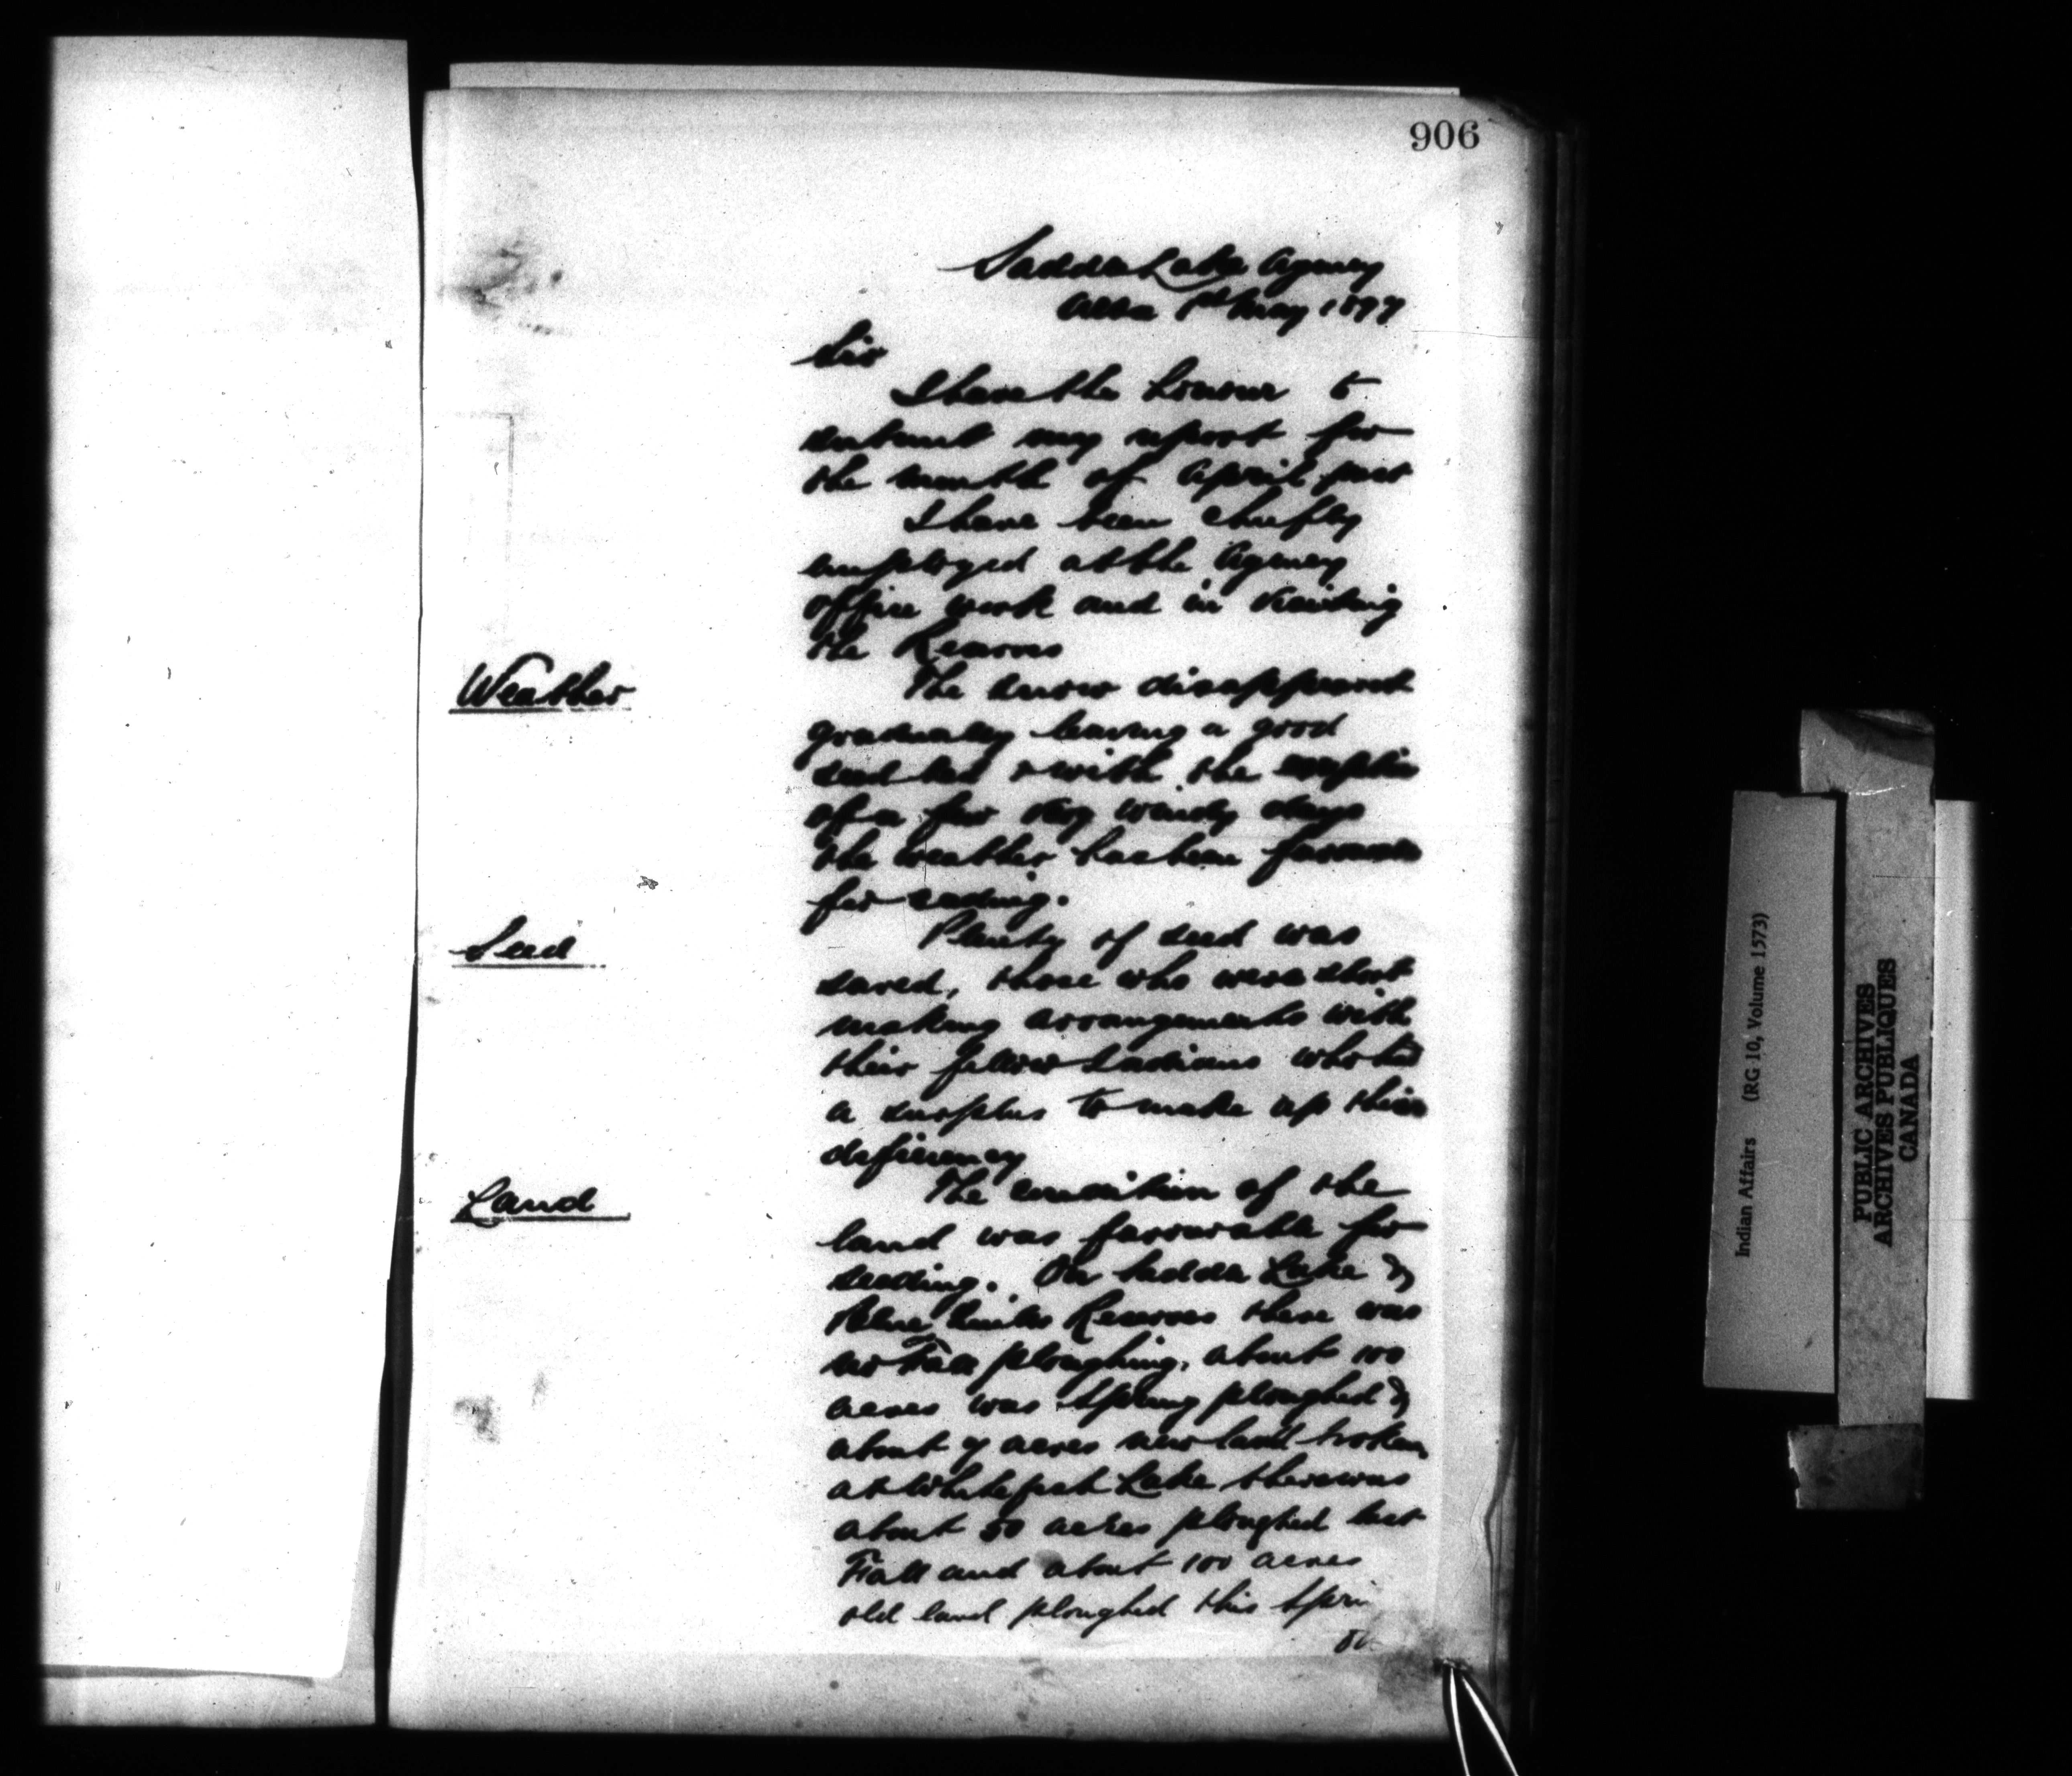 906
Saddle Lake Agency
Alta 1st May 1897
Sir
I have the honour to
submit my report for
the month of April past
I have been chiefly
employed at the Agency
office work and in visiting
the Reserves
Weather
The snow disappeared
gradually leaving a good
seed bed & with the exception
of a few very windy days
the weather has been
for seeding.
Seed
Plenty of seed was
saved, those who were short
making arrangements with
their fellow Indians who had
a surplus to make up their
deficiency
Land
The condition of the
land was favourable for
seeding. On Saddle Lake &
Blue Quills Reserves there was
no Fall ploughing, about 100
acres was Spring ploughed &
about 7 acres new land broken
at Whitefish Lake there was
about 50 acres ploughed last
Fall and about 100 acres
old land ploughed this Sprin
Indian Affairs (RG 10, Volume 1573)
PUBLIC ARCHIVES
ARCHIVES PUBLIQUES
CANADA